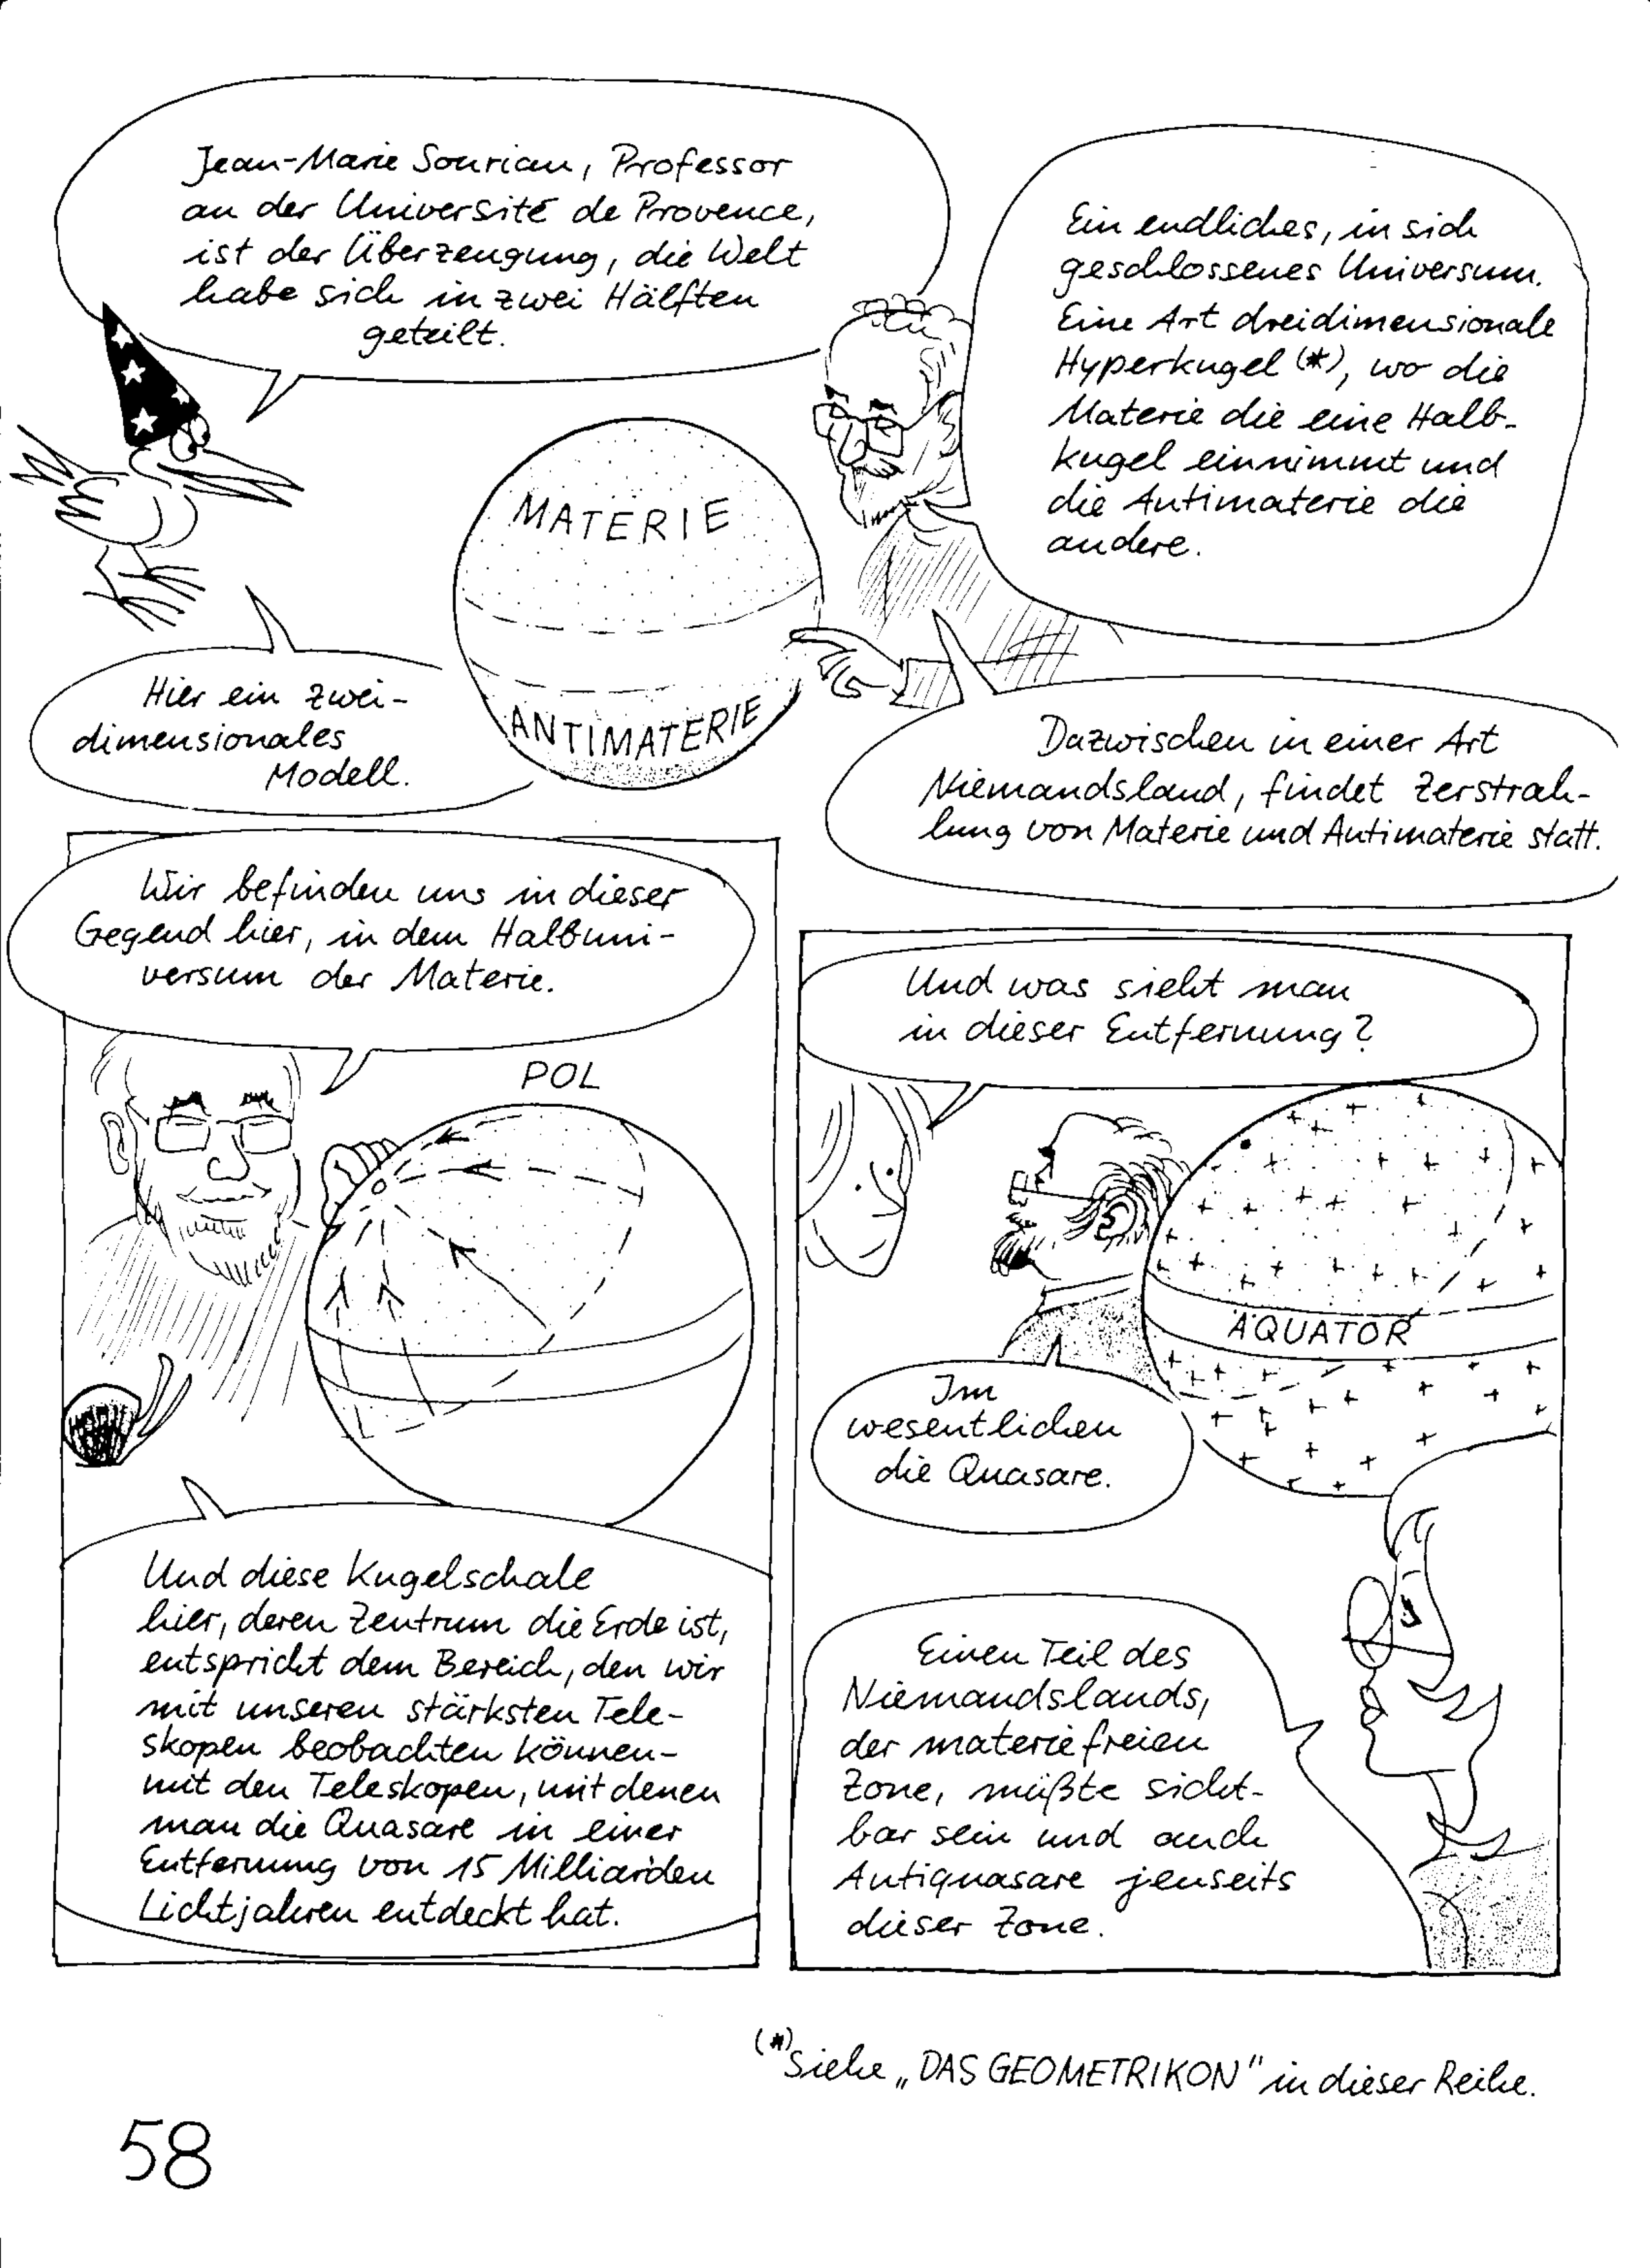 Jean-Marie Souriau, Professor
an der Université de Provence,
ist der Überzeugung, die Welt
habe sich in zwei Hälften
geteilt.
Ein endliches, in sich
geschlossenes Universum.
Eine Art dreidimensionale
Hyperkugel (*), wo die
Materie die eine Halb-
kugel einnimmt und
die Antimaterie die
andere.
MATERIE
ANTIMATERIE
Hier ein zwei-
dimensionales
Modell.
Dazwischen in einer Art
Niemandsland, findet Zerstrah-
lung von Materie und Antimaterie statt.
Wir befinden uns in dieser
Gegend hier, in dem Halbuni-
versum der Materie.
POL
Und diese Kugelschale
hier, deren Zentrum die Erde ist,
entspricht dem Bereich, den wir
mit unseren stärksten Tele-
skopen beobachten können-
mit den Teleskopen, mit denen
man die Quasare in einer
Entfernung von 15 Milliarden
Lichtjahren entdeckt hat.
Und was sieht man
in dieser Entfernung?
ÄQUATOR
Im
wesentlichen
die Quasare.
Einen Teil des
Niemandslands,
der materiefreien
Zone, müßte sicht-
bar sein und auch
Antiquasare jenseits
dieser Zone.
(*) Siehe „DAS GEOMETRIKON" in dieser Reihe.
58